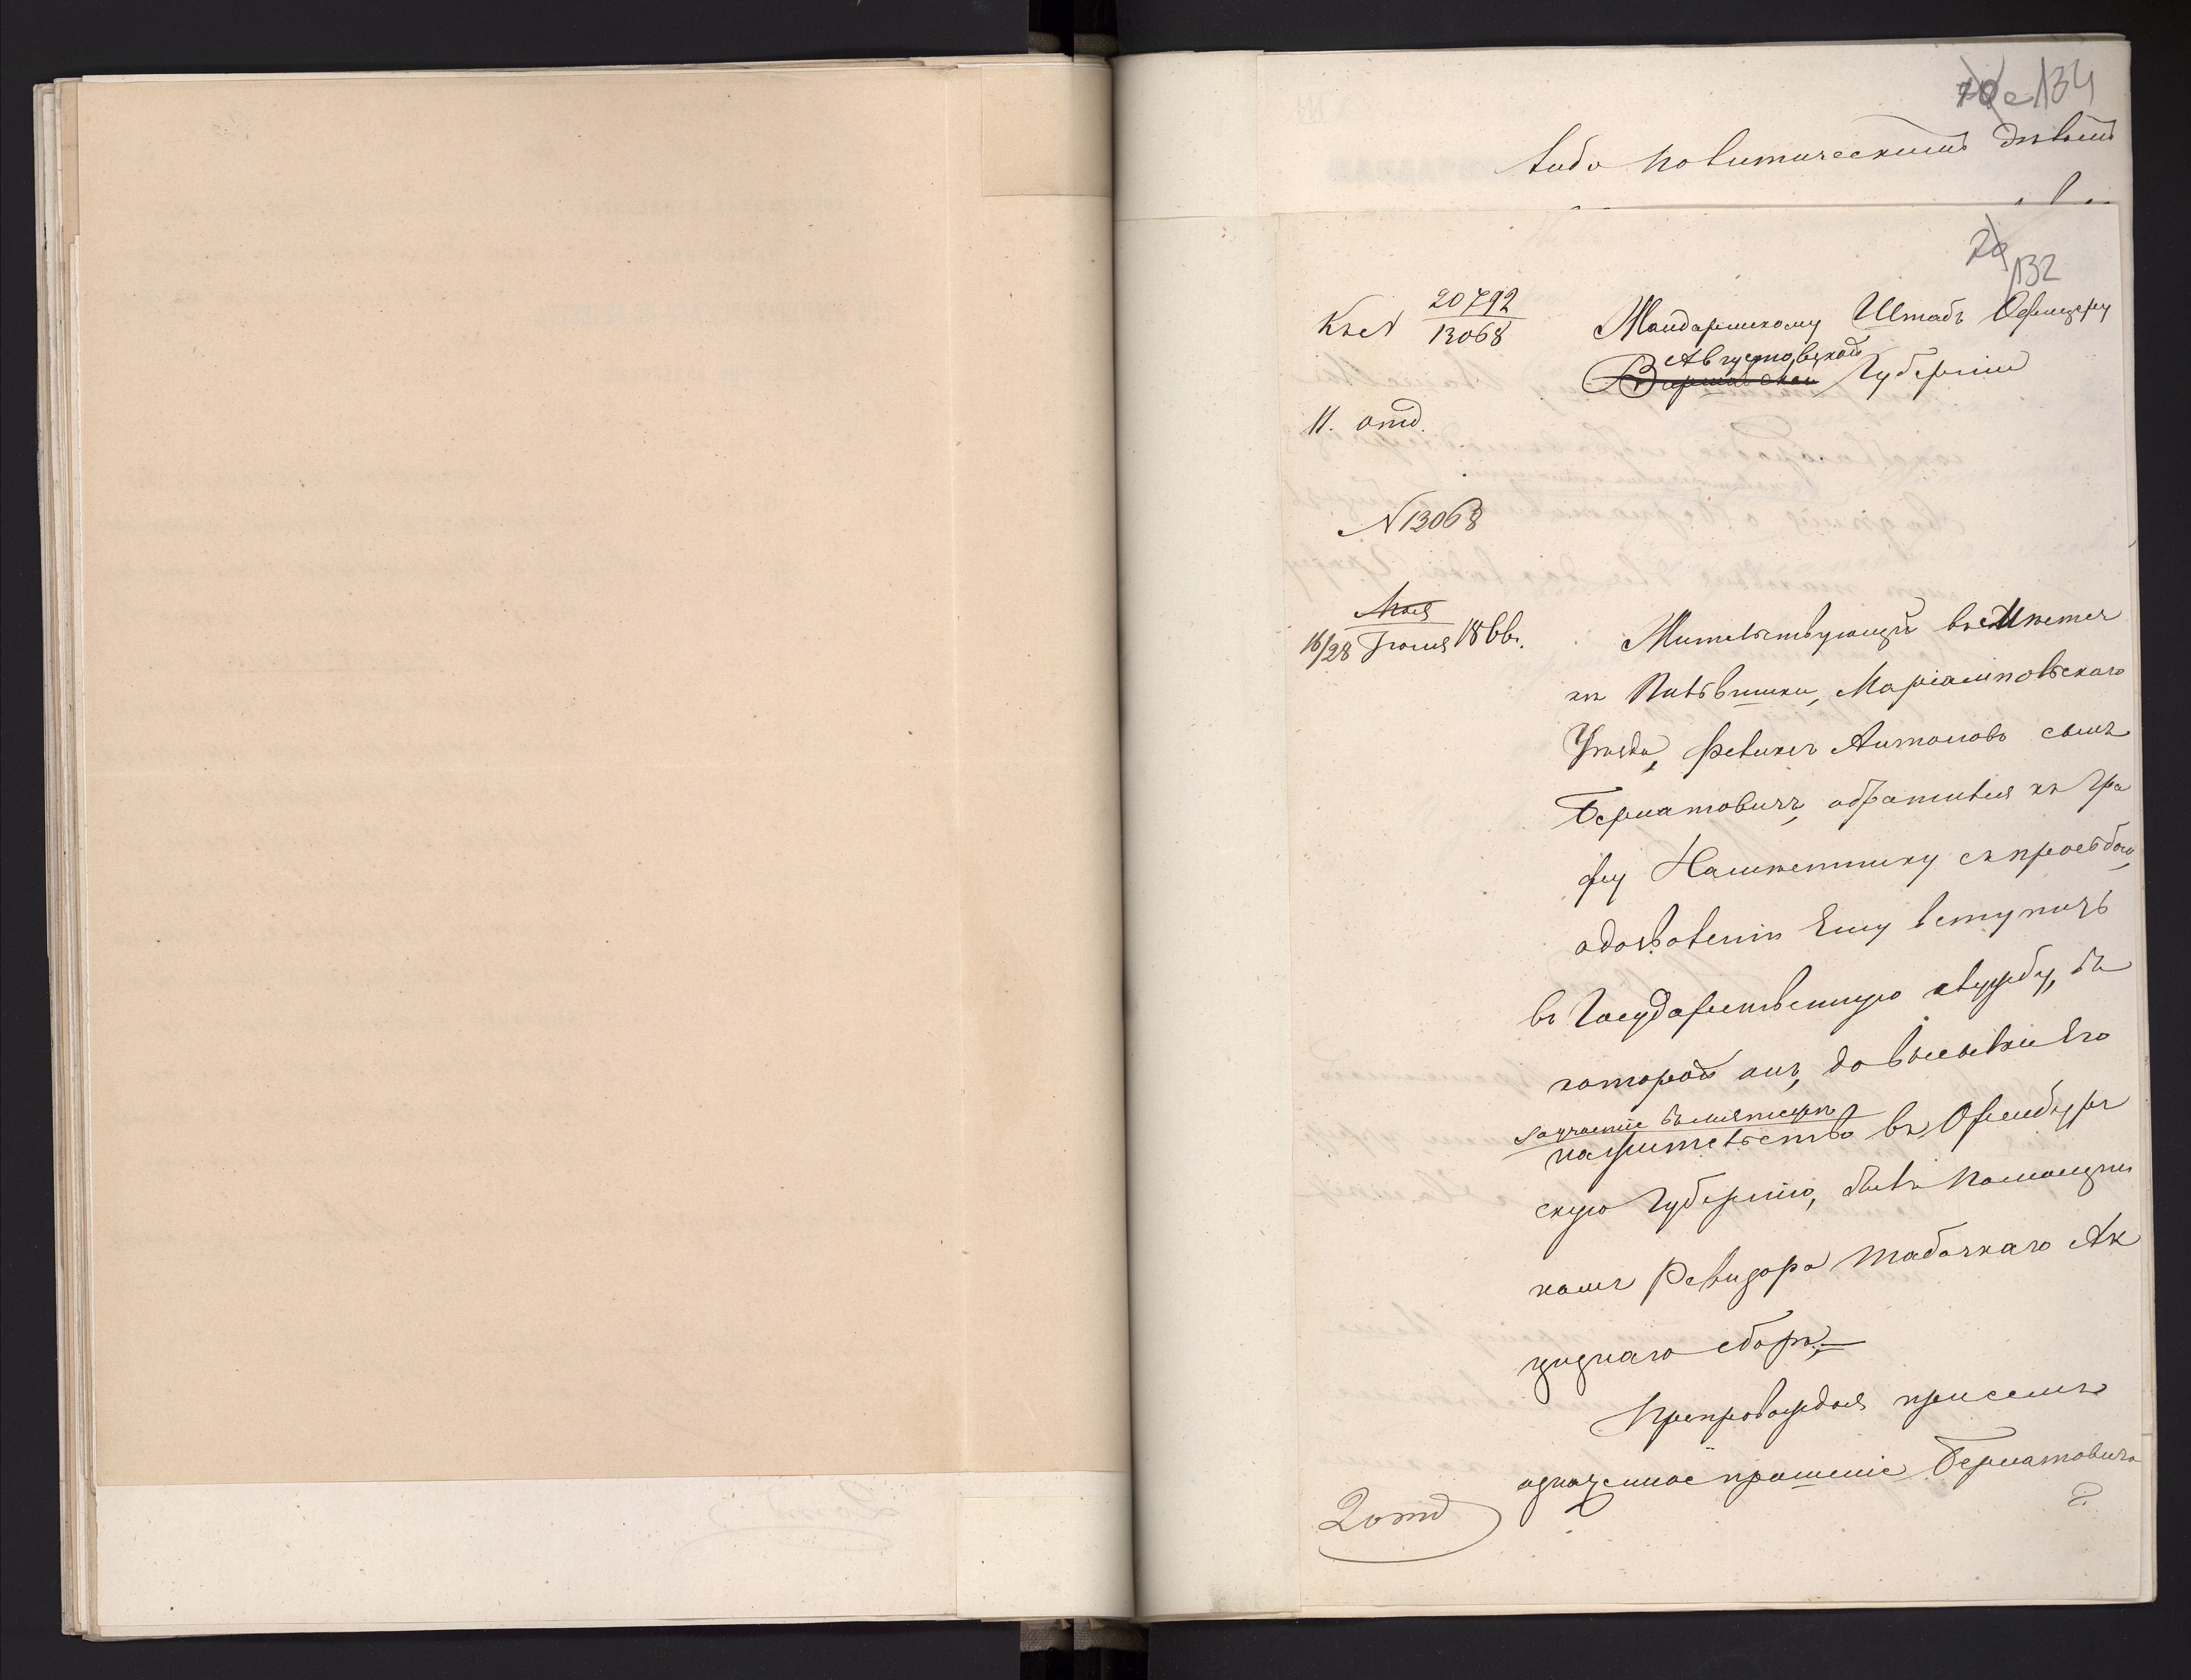 134
либо политическимъ дѣламъ
132
Къ № 20792/13068
Жандармскому Штабъ Офицеру
Августовской
Варшавской Губерніи
II. отд.
№ 13068
Мая
16/28 Іюня 1866.
Жительствующій въ Мѣстеч
кѣ Пильвишки, Маріампольскаго
Уѣзда, Феликсъ Антоновъ сынъ
Бернатовичъ, обратился къ Гра
фу Намѣстнику съ просьбою,
о дозволеніи Ему вступить
въ Государственную службу, въ
которой онъ, до высылки Его
за участіе въ мятежѣ
на жительство въ Оренбург
скую Губернію, былъ Помощни
комъ Ревизора Табачнаго Ак
цизнаго сбора.
Препровождая при семъ
означенное прошеніе Бернатовича
2 отд